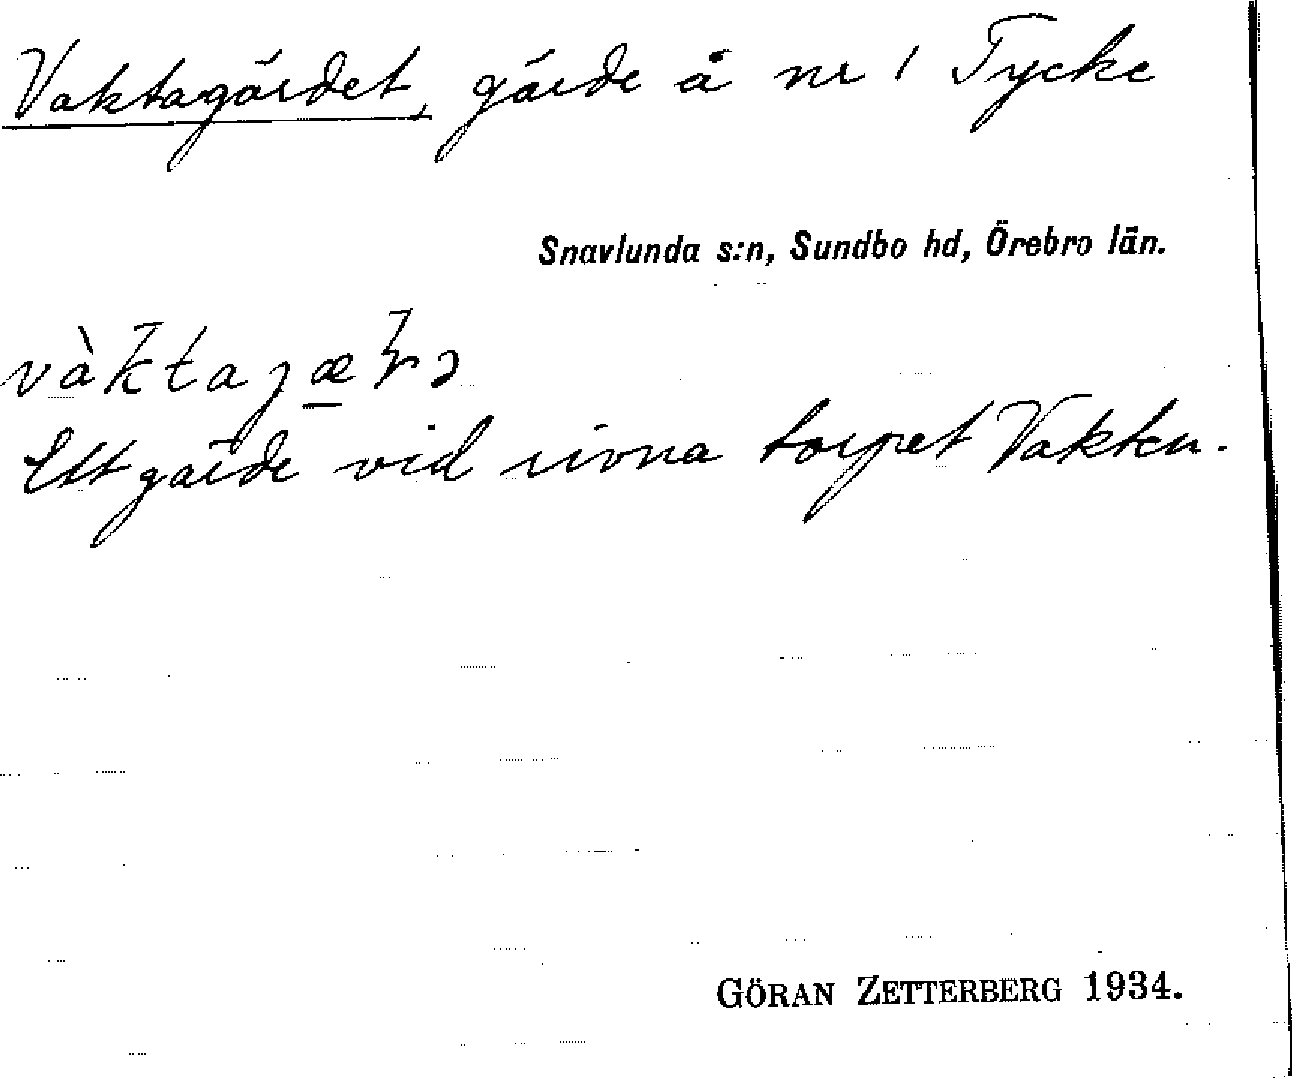 Vaktagärdet, gärde å nr 1 Tycke
Snavlunda s:n, Sundbo hd, Örebro län.
Ett gärde vid rivna torpet Vakten.
GÖRAN ZETTERBERG 1934.